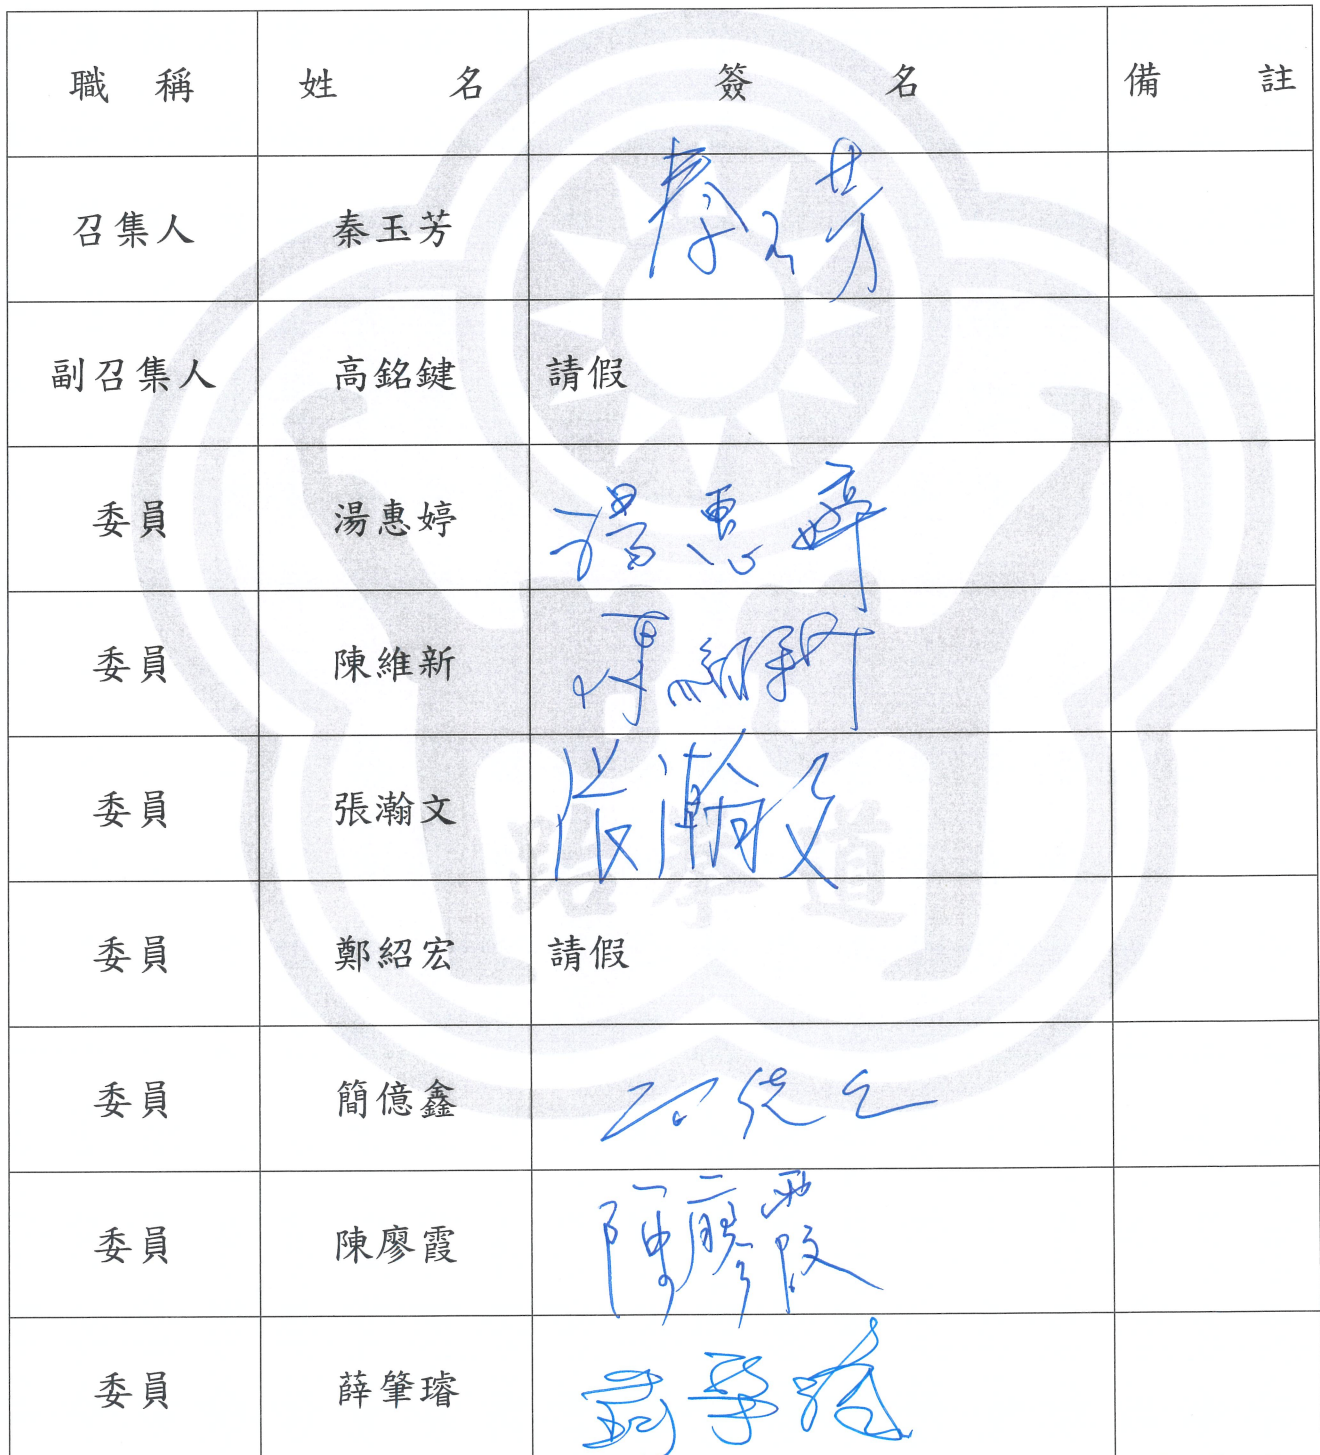 職稱 姓名 簽名 備註
召集人 秦玉芳 秦玉芳
副召集人 高銘鍵 請假
委員 湯惠婷 湯惠婷
委員 陳維新 陳維新
委員 張瀚文 張瀚文
委員 鄭紹宏 請假
委員 簡億鑫
委員 陳廖霞 陳廖霞
委員 薛肇璿 薛肇璿
跆拳道